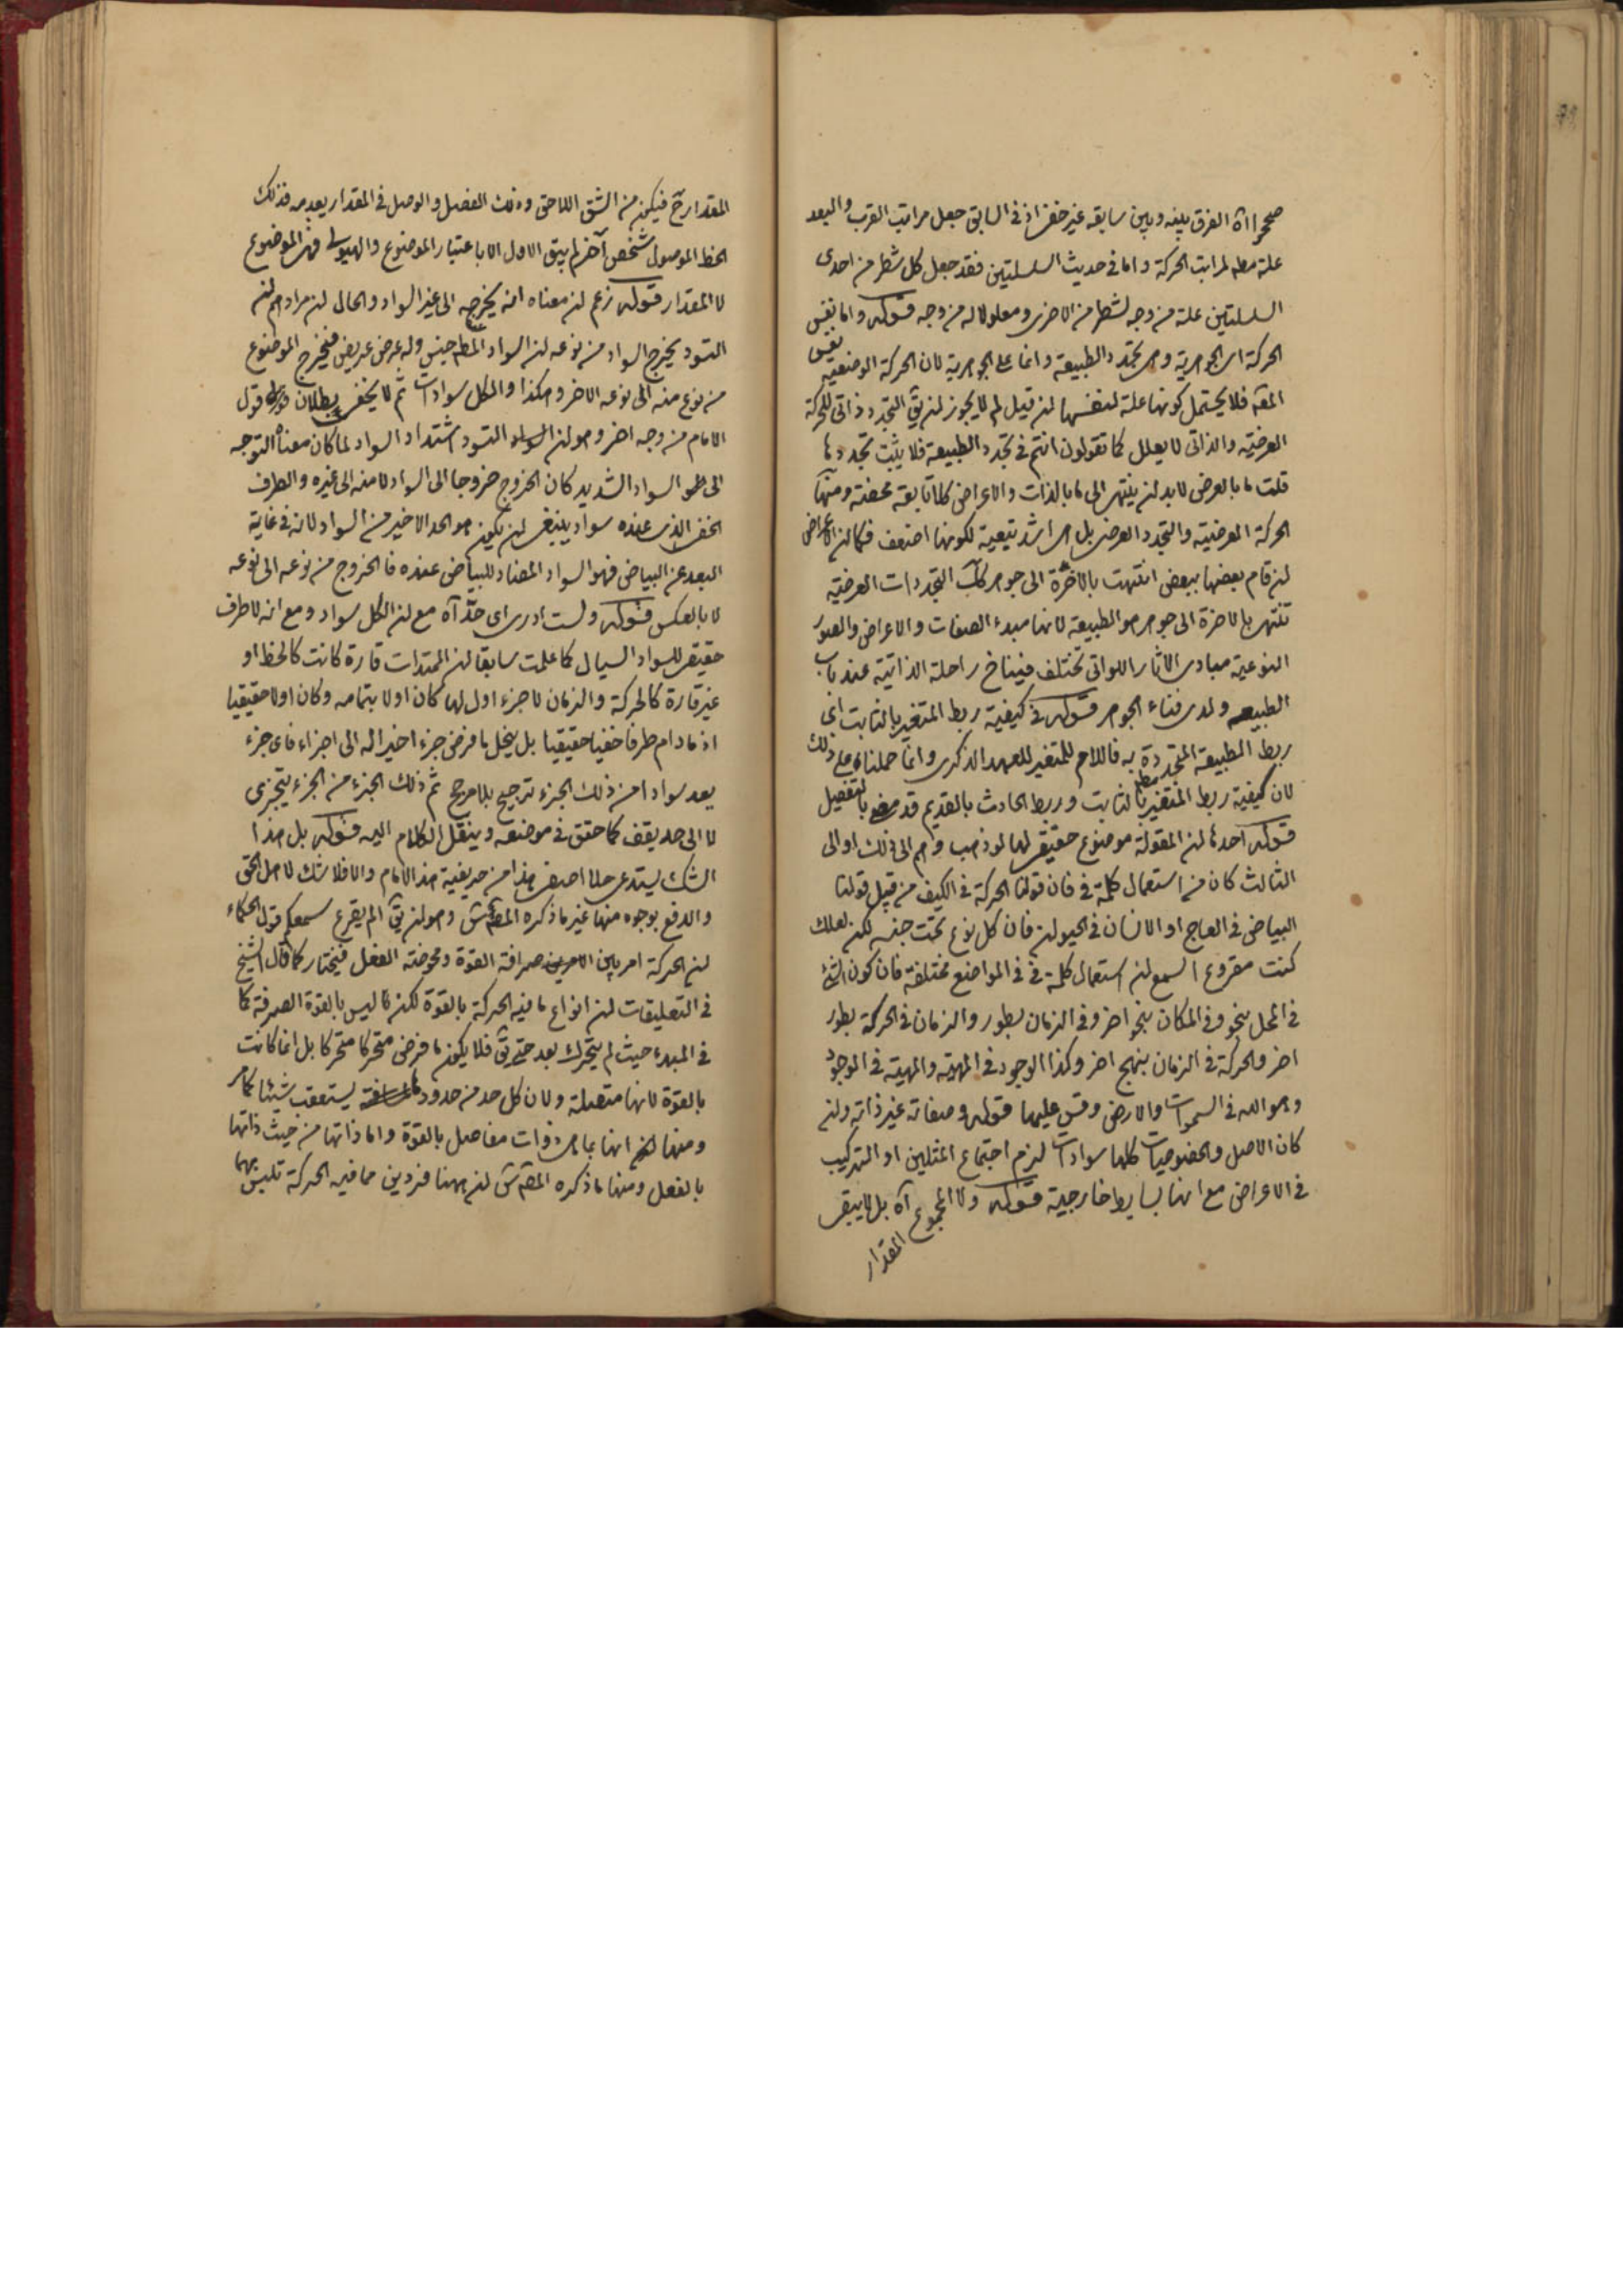 صححوا اه الفرق بينه وبين سابقه غير خفى اذ فى السابق جعل مراتب القرب والبعد
علة مطه لمراتب الحركة واما فى حديث السلسلتين فقد جعل كل شطر من احدى
السلسلتين علة من وجه لشطر من الاخرى ومعلولا له من وجه قوله واما نفس
الحركة اى الجوهرية وهى تجدد الطبيعة وانما على الجوهرية لان الحركة الوضعية
نفس
المقه فلا يحتمل كونها علة لنفسها ان قيل لم لا يجوز ان يق التجدد ذاتى للحركة
العرضية والذاتى لا يعلل كما تقولون انتم فى تجدد الطبيعة فلا يثبت تجددها
قلت ما بالعرض لابد ان ينتهى الى ما بالذات والاعراض كلها تابعة محضة ومنها
الحركة العرضية والتجدد العرضى بل هى اشد تبعية لكونها اضعف فكما ان الاعراض
ان قام بعضها ببعض انتهت بالاخرة الى جوهر كك التجددات العرضية
تنتهى بالاخرة الى جوهر هو الطبيعة لانها مبدء الصفات والاعراض والصور
النوعية مبادى الاثار اللواتى تختلف فيناخ راحلة الذاتية عند باب
الطبيعه ولدى فناء الجوهر قوله فى كيفية ربط المتغير بالثابت اى
ربط الطبيعة المتجددة به فاللام للمتغير للعهد الذكرى وانما حملناه على ذلك
لان كيفية ربط المتغير مطه بالثابت وربط الحادث بالقديم قد مضى بالتفصيل
قوله احدها ان المقولة موضوع حقيقى لها لو ذهب وهم الى ذلك او الى
الثالث كان من استعمال كلمة فى فان قولنا الحركة فى الكيف من قبيل قولنا
البياض فى العاج او الانسان فى الحيوان فان كل نوع تحت جنسه لكن لعلك
كنت مقروع السمع ان استعمال كلمة فى فى المواضع مختلفة فان كون الشئ
فى المحل بنحو وفى المكان بنحو اخر وفى الزمان بطور والزمان فى الحركة بطور
اخر والحركة فى الزمان بنهج اخر وكذا الوجود فى المهية والمهية فى الوجود
وهو الله فى السموات والارض وقس عليهما قوله وصفاته غير ذاته وان
كان الاصل والخصوصيات كلها سوادات لزم اجتماع المثلين او التركيب
فى الاعراض مع انها بسايط خارجية قوله ولا المجموع آه بل لا يبقى
المقدار
المقدار ح فيكون من الشق اللاحق وذلك الفصل والوصل فى المقدار يعدمه فذلك
الخط الموصول شخص آخر لم يبق الاول الا باعتبار الموضوع والهيولى فهى الموضوع
لا المقدار قوله زعم ان معناه انه يخرجه الى غير السواد والحال ان مرادهم ان
التسود يخرج السواد من نوعه لان السواد المطه جنس وله عرض عريض فيخرج الموضوع
من نوع منه الى نوعه الاخر وهكذا والكل سوادات ثم لا يخفى بطلان قول
الامام من وجه اخر وهو ان التسود اشتداد السواد لما كان معناه التوجه
الى السواد الشديد كان الخروج خروجا الى السواد لا منه الى غيره والطرف
الخفى الذى عنده سواد ينبغى ان يكون هو الحد الاخير من السواد لانه فى غاية
البعد عن البياض فهو السواد المضاد للبياض عنده فالخروج من نوعه الى نوعه
لا بالعكس قوله ولست ادرى اى حد آه مع ان الكل سواد ومع انه لا طرف
حقيقى للسواد السيال كما علمت سابقا ان الممتدات قارة كانت كالخط او
غير قارة كالحركة والزمان لا جزء اول لها كان اولا بتمامه وكان اولا حقيقيا
اذ مادام طرفا خفيا حقيقيا بل ينحل ما فرض جزء اخيرا له الى اجزاء فاى جزء
يعد سوادا من ذلك الجزء ترجيح بلا مرجح ثم ذلك الجزء من الجزء يتجزى
لا الى حد يقف كما حقق فى موضعه وينقل الكلام اليه قوله بل هذا
الشك يستدعى حلا اصفى هذا من حريفية هذا الامام والا فلا شك لاهل الحق
والدفع بوجوه منها غير ما ذكره المص قدس وهو ان يق الم يقرع سمعكم قول الحكماء
ان الحركة امر بين صرافة القوة ومحوضة الفعل فيختار كما قال الشيخ
فى التعليقات ان انواع ما فيه الحركة بالقوة لكن لا ليس بالقوة الصرفة كما
فى المبدء حيث لم يتحرك بعد حتى يق فلا يكون ما فرض متحركا متحركا بل انما كانت
بالقوة لانها متصلة ولان كل حد من حدود يستعقب شيئا كما مر
ومنها انها بما هى ذوات مفاصل بالقوة واما ذاتها من حيث ذاتها
بالفعل ومنها ما ذكره المص قدس ان ههنا فردين مما فيه الحركة تلبس بهما